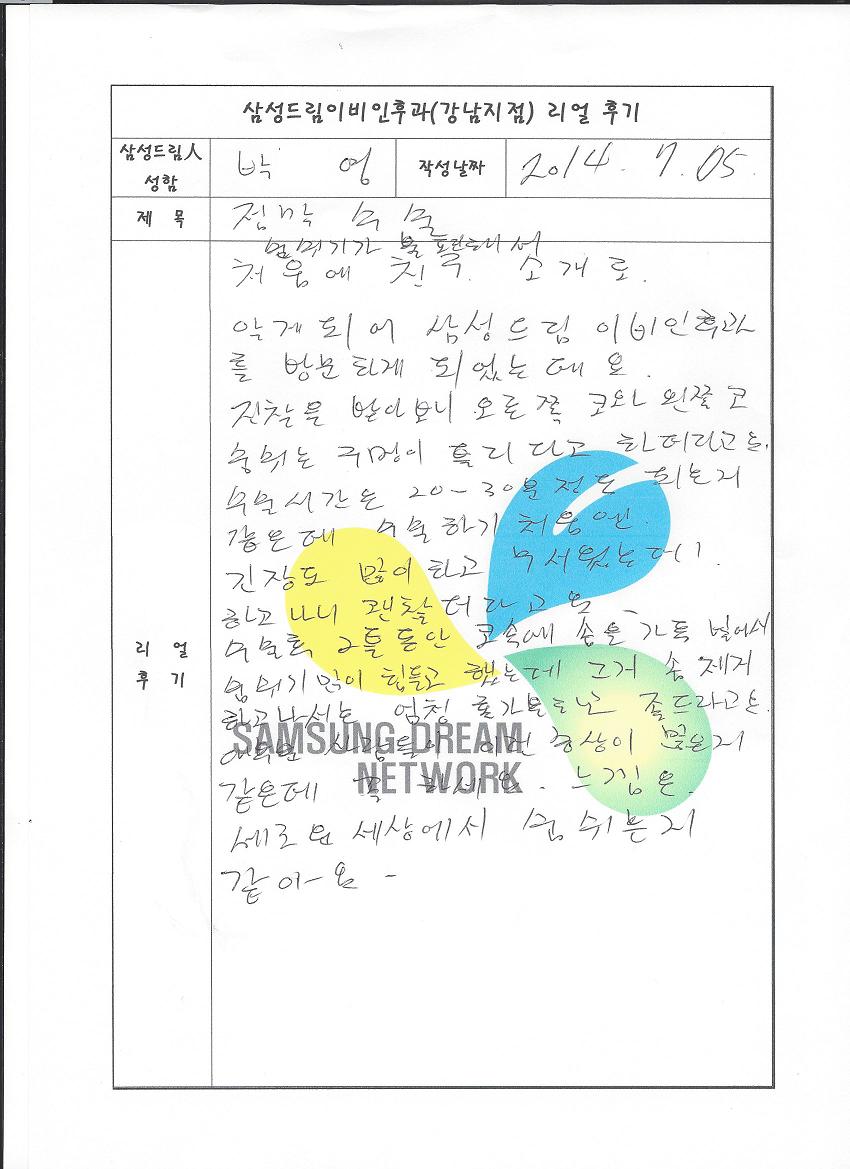 삼성드림이비인후과(강남지점) 리얼 후기
삼성드림人 성함 박 영 작성날짜 2014. 7. 05.
제 목 점막 수술
숨쉬기가 불편해서
처음에 친구 소개로.
알게되어 삼성드림 이비인후과
를 방문하게 되었는데요.
진찰을 받아보니 오른쪽 코와 왼쪽 코
숨쉬는 구멍이 틀리다고 하더라고요.
수술시간은 20-30분 정도 되는거
같은데 수술하기 처음엔
긴장도 많이하고 무서웠는데
하고나니 괜찮더라고요
수술후 2틀동안 코속에 솜을 가득 넣어서
숨쉬기 많이 힘들고 했는데 그거 솜 제거
하고나서는 엄청 좋드라고요.
사람들이 이런 증상이 많은거
같은데 꼭 하세요. 느낌은.
새로운 세상에서 숨쉬는거
같아요 -
리 얼
후 기
SAMSUNG DREAM
NETWORK